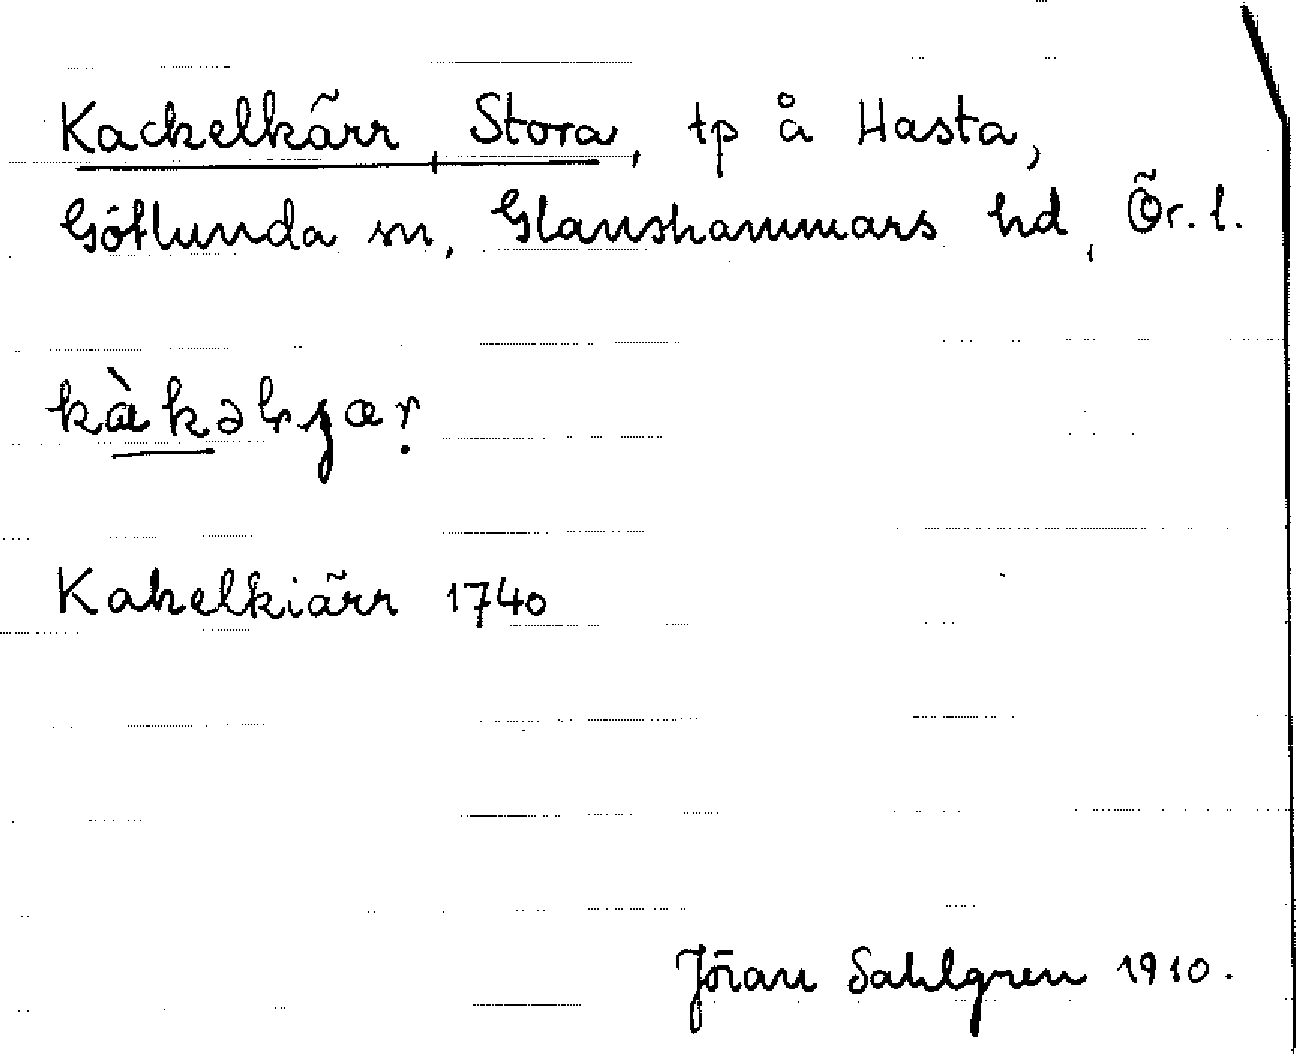 Kackelkärr, Stora, tp å Hasta,
Götlunda sn, Glanshammars hd, Ör. l.
Kakelkiärr 1740
Jöran Sahlgren 1910.